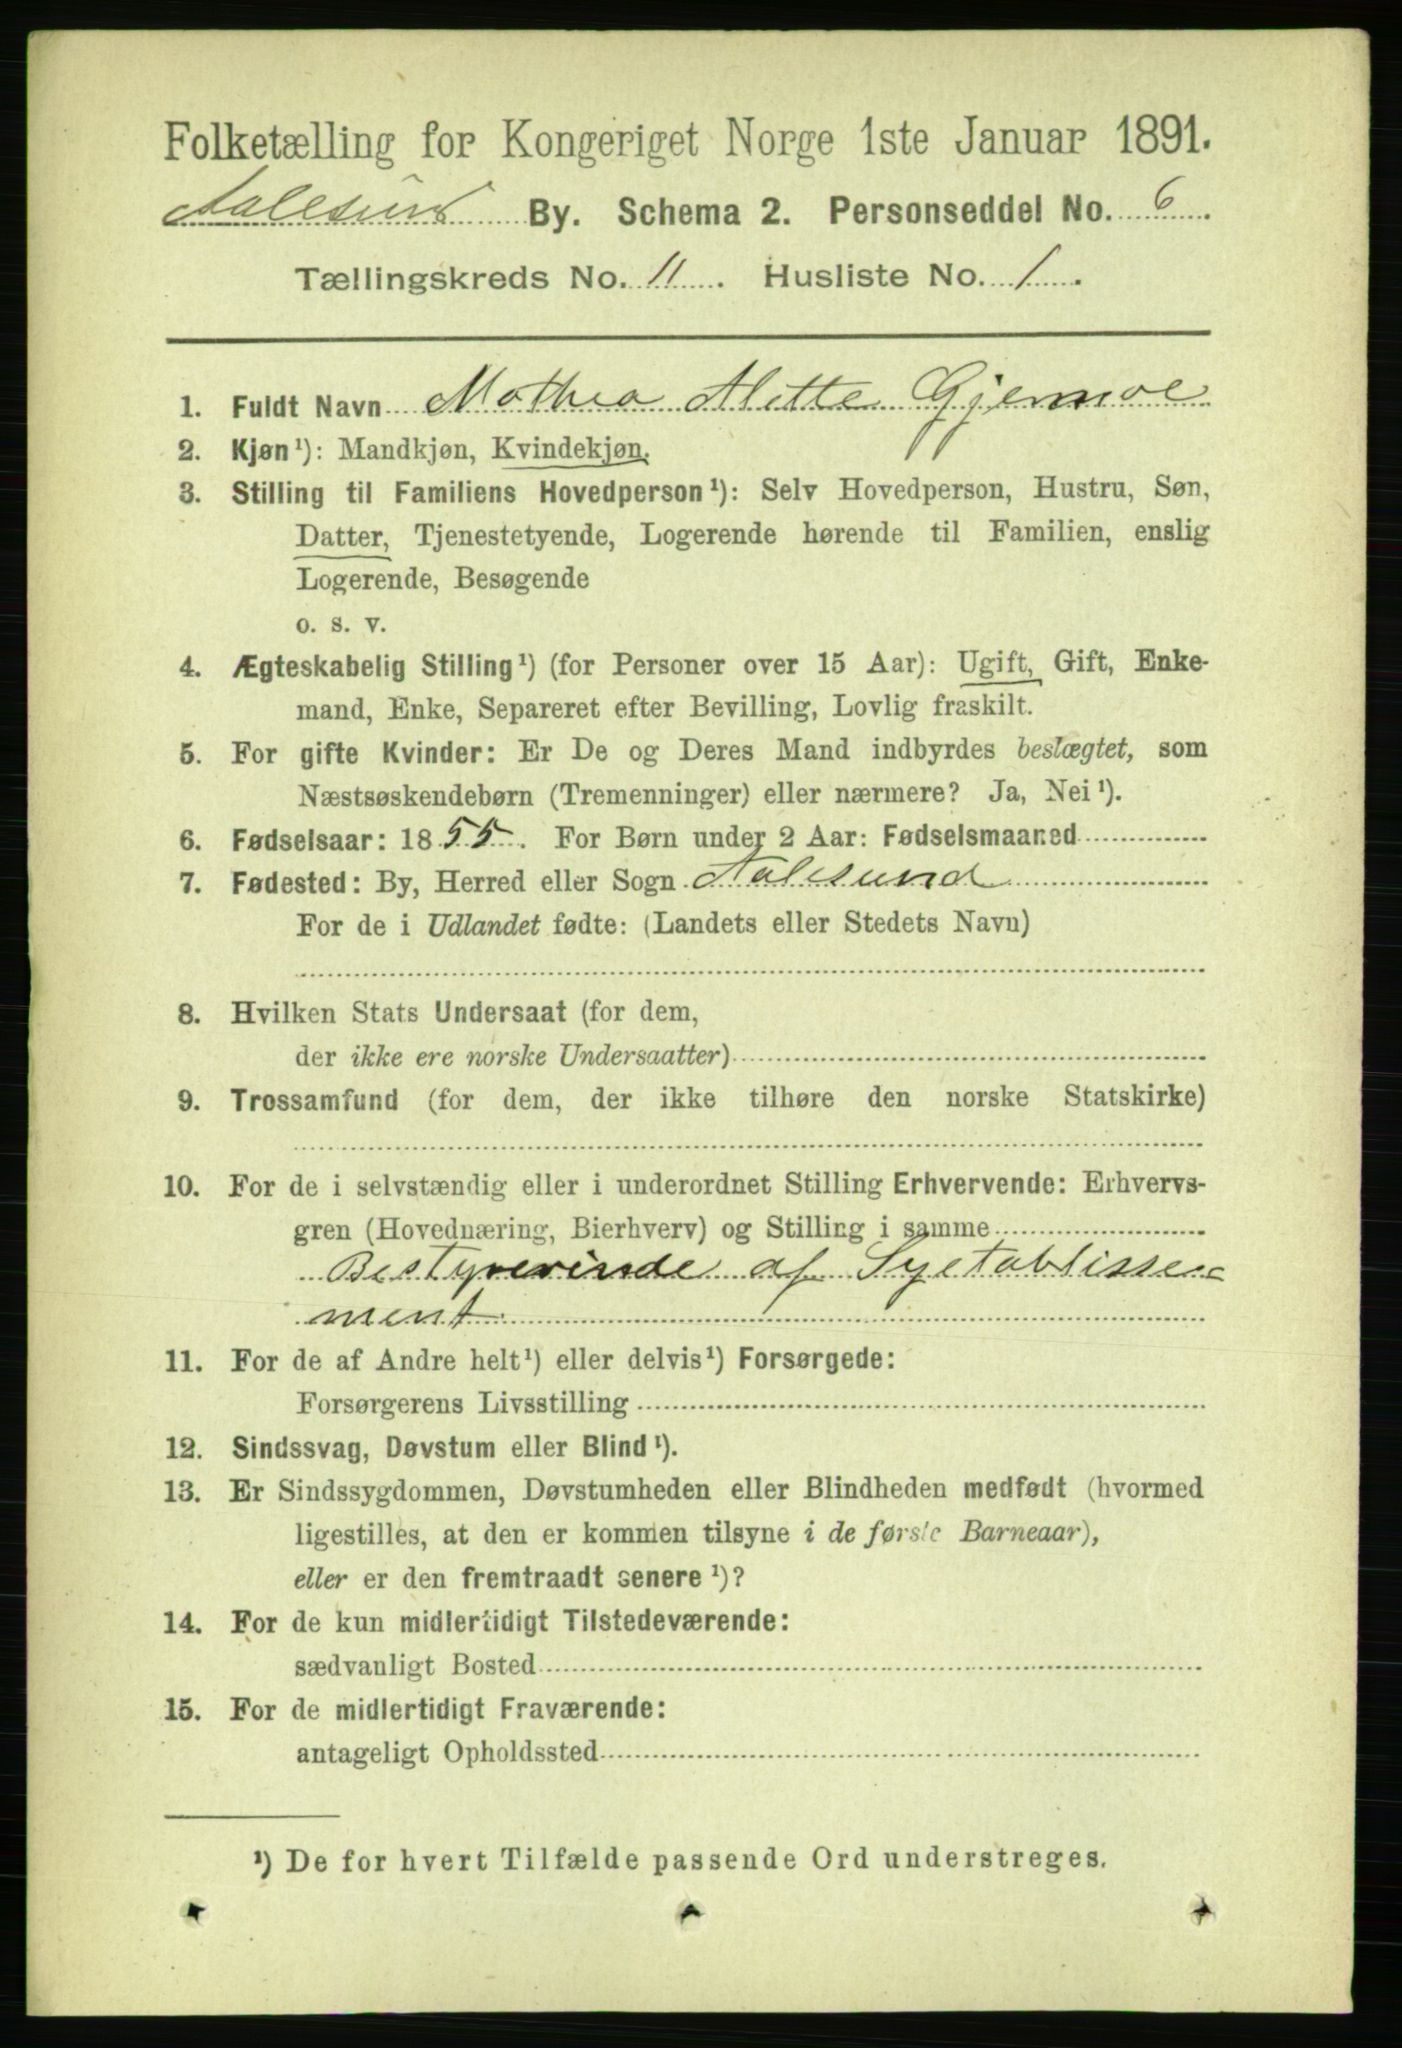 Folketælling for Kongeriget Norge 1ste Januar 1891.
Aalesund By. Schema 2. Personseddel No. 6.
Tællingskreds No. 11. Husliste No. 1.
1. Fuldt Navn Mathea Alette Gjemoe
2. Kjøn¹): Mandkjøn, Kvindekjøn.
3. Stilling til Familiens Hovedperson¹): Selv Hovedperson, Hustru, Søn,
Datter, Tjenestetyende, Logerende hørende til Familien, enslig
Logerende, Besøgende
o. s. v.
4. Ægteskabelig Stilling¹) (for Personer over 15 Aar): Ugift, Gift, Enke-
mand, Enke, Separeret efter Bevilling, Lovlig fraskilt.
5. For gifte Kvinder: Er De og Deres Mand indbyrdes beslægtet, som
Næstsøskendebørn (Tremenninger) eller nærmere? Ja, Nei¹).
6. Fødselsaar: 1855. For Børn under 2 Aar: Fødselsmaaned
7. Fødested: By, Herred eller Sogn Aalesund
For de i Udlandet fødte: (Landets eller Stedets Navn)
8. Hvilken Stats Undersaat (for dem,
der ikke ere norske Undersaatter)
9. Trossamfund (for dem, der ikke tilhøre den norske Statskirke)
10. For de i selvstændig eller i underordnet Stilling Erhvervende: Erhvervs-
gren (Hovednæring, Bierhverv) og Stilling i samme
Bestyrerinde af Syetablisse-
ment
11. For de af Andre helt¹) eller delvis¹) Forsørgede:
Forsørgerens Livsstilling
12. Sindssvag, Døvstum eller Blind¹).
13. Er Sindssygdommen, Døvstumheden eller Blindheden medfødt (hvormed
ligestilles, at den er kommen tilsyne i de første Barneaar),
eller er den fremtraadt senere¹)?
14. For de kun midlertidigt Tilstedeværende:
sædvanligt Bosted
15. For de midlertidigt Fraværende:
antageligt Opholdssted
¹) De for hvert Tilfælde passende Ord understreges.